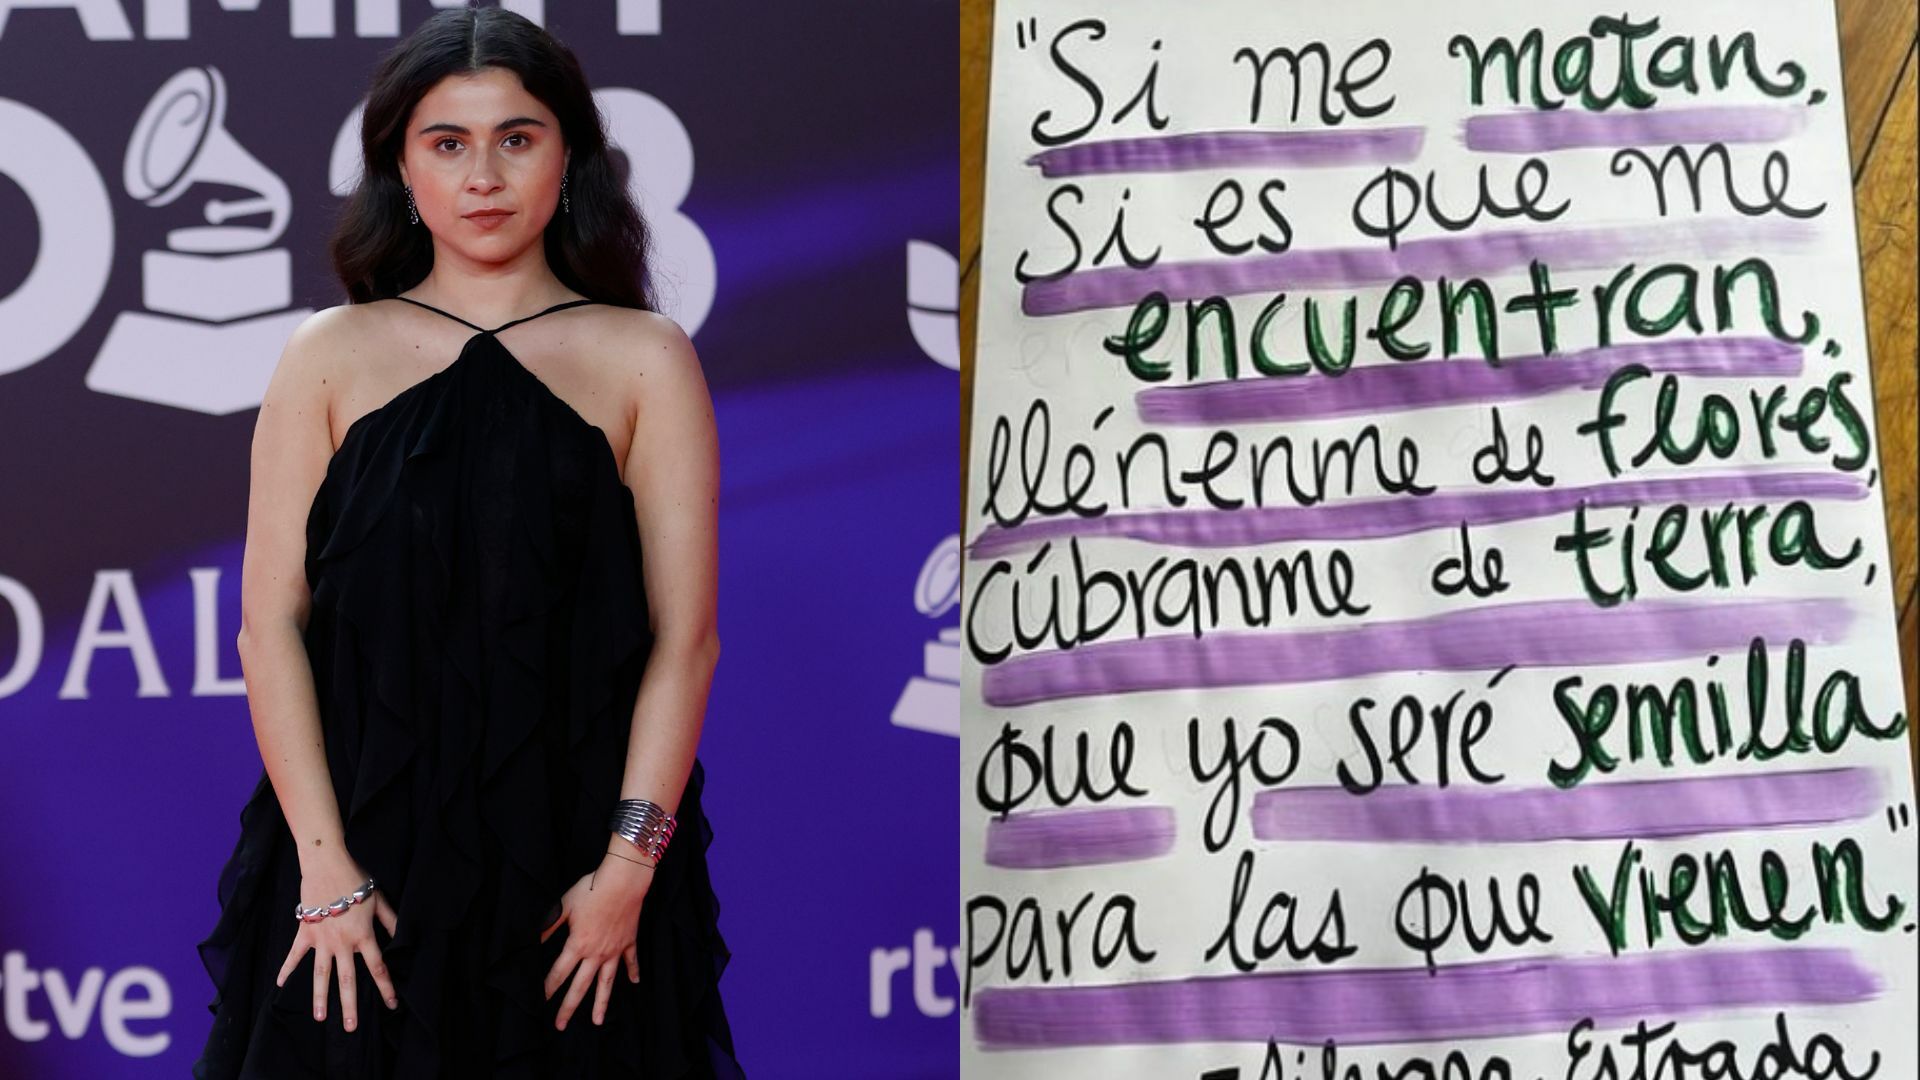 "Si me matan,
Si es que me
encuentran,
llénenme de flores,
Cúbranme de tierra,
que yo seré semilla
para las que vienen."
-Silvana Estrada
rtve